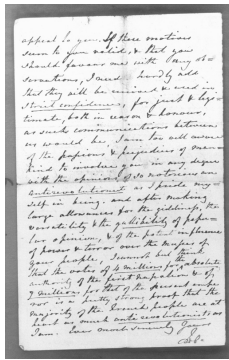 appeal to you. If these motives
seem to you valid, & that you
should favour me with any ob-
servations, I need hardly add
that they will be received & used in
strict confidence, for just & legi-
timate, both in reason & honour,
as such communications between
us would be, I am too well aware
of the passions & prejudices of man-
kind to in any degree
with the opinions of so notorious an
antirevolutionist as I pride my-
self in being. and after making
large allowances for the
versatility & the gullibility of popu-
lar opinion, & of the potent influence
of power & terror over the masses of
your people, I cannot but think
that the votes of 4 millions for the absolute
authority of the first Napoleon & of
7 millions for that of the present empe-
ror is a pretty strong proof that the
majority of the French people are at
heart as much antirevolutionists as
I am. Ever most sincerely Yours